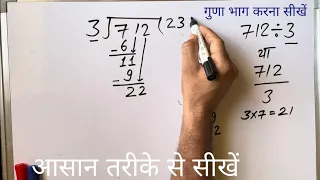 गुणा भाग करना सीखें
3)712(23
-6
11
-9
22
712÷3
या
712
3
3×7=21
9
2
आसान तरीके से सीखें